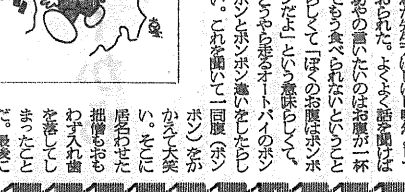 おられた。よくよく話を聞けば
あやの言いたいのはお腹が一杯
でもう食べられないということ
らしくて「ぼくのお腹はポンポ
ンだよ」という意味らしくて、
どうやら走るオートバイのポン
ポンとポンポン違いをしたらし
い。これを聞いて一同腹（ポン
ポン）をか
かえて大笑
い。そこに
居合わせた
拙僧もおも
わず入れ歯
を落してし
まったこと
だ。最後に